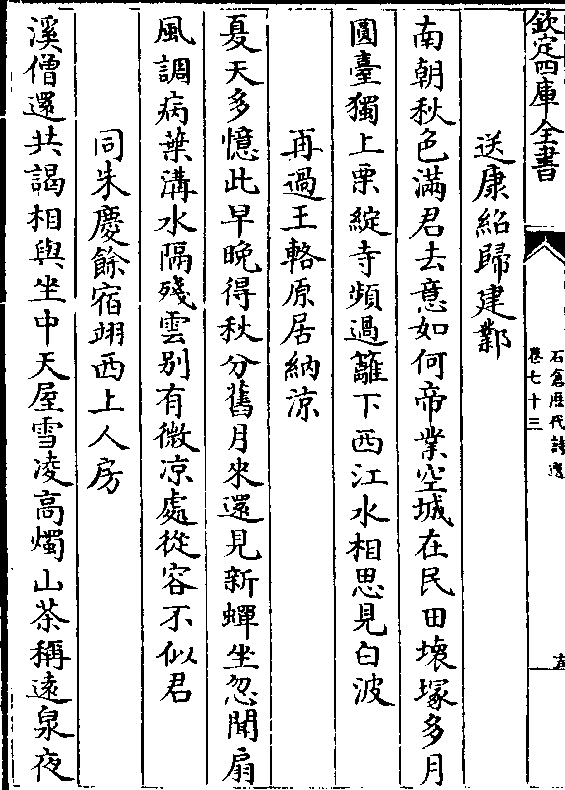 欽定四庫全書
石倉歷代詩選
卷七十三
送康紹歸建鄴
南朝秋色滿君去意如何帝業空城在民田壞塚多月
圓臺獨上栗綻寺頻過籬下西江水相思見白波
再過王輅原居納涼
夏天多憶此早晚得秋分舊月來還見新蟬坐忽聞扇
風調病葉溝水隔殘雲别有微凉處從容不似君
同朱慶餘宿翊西上人房
溪僧還共謁相與坐中天屋雪凌高燭山茶稱遠泉夜